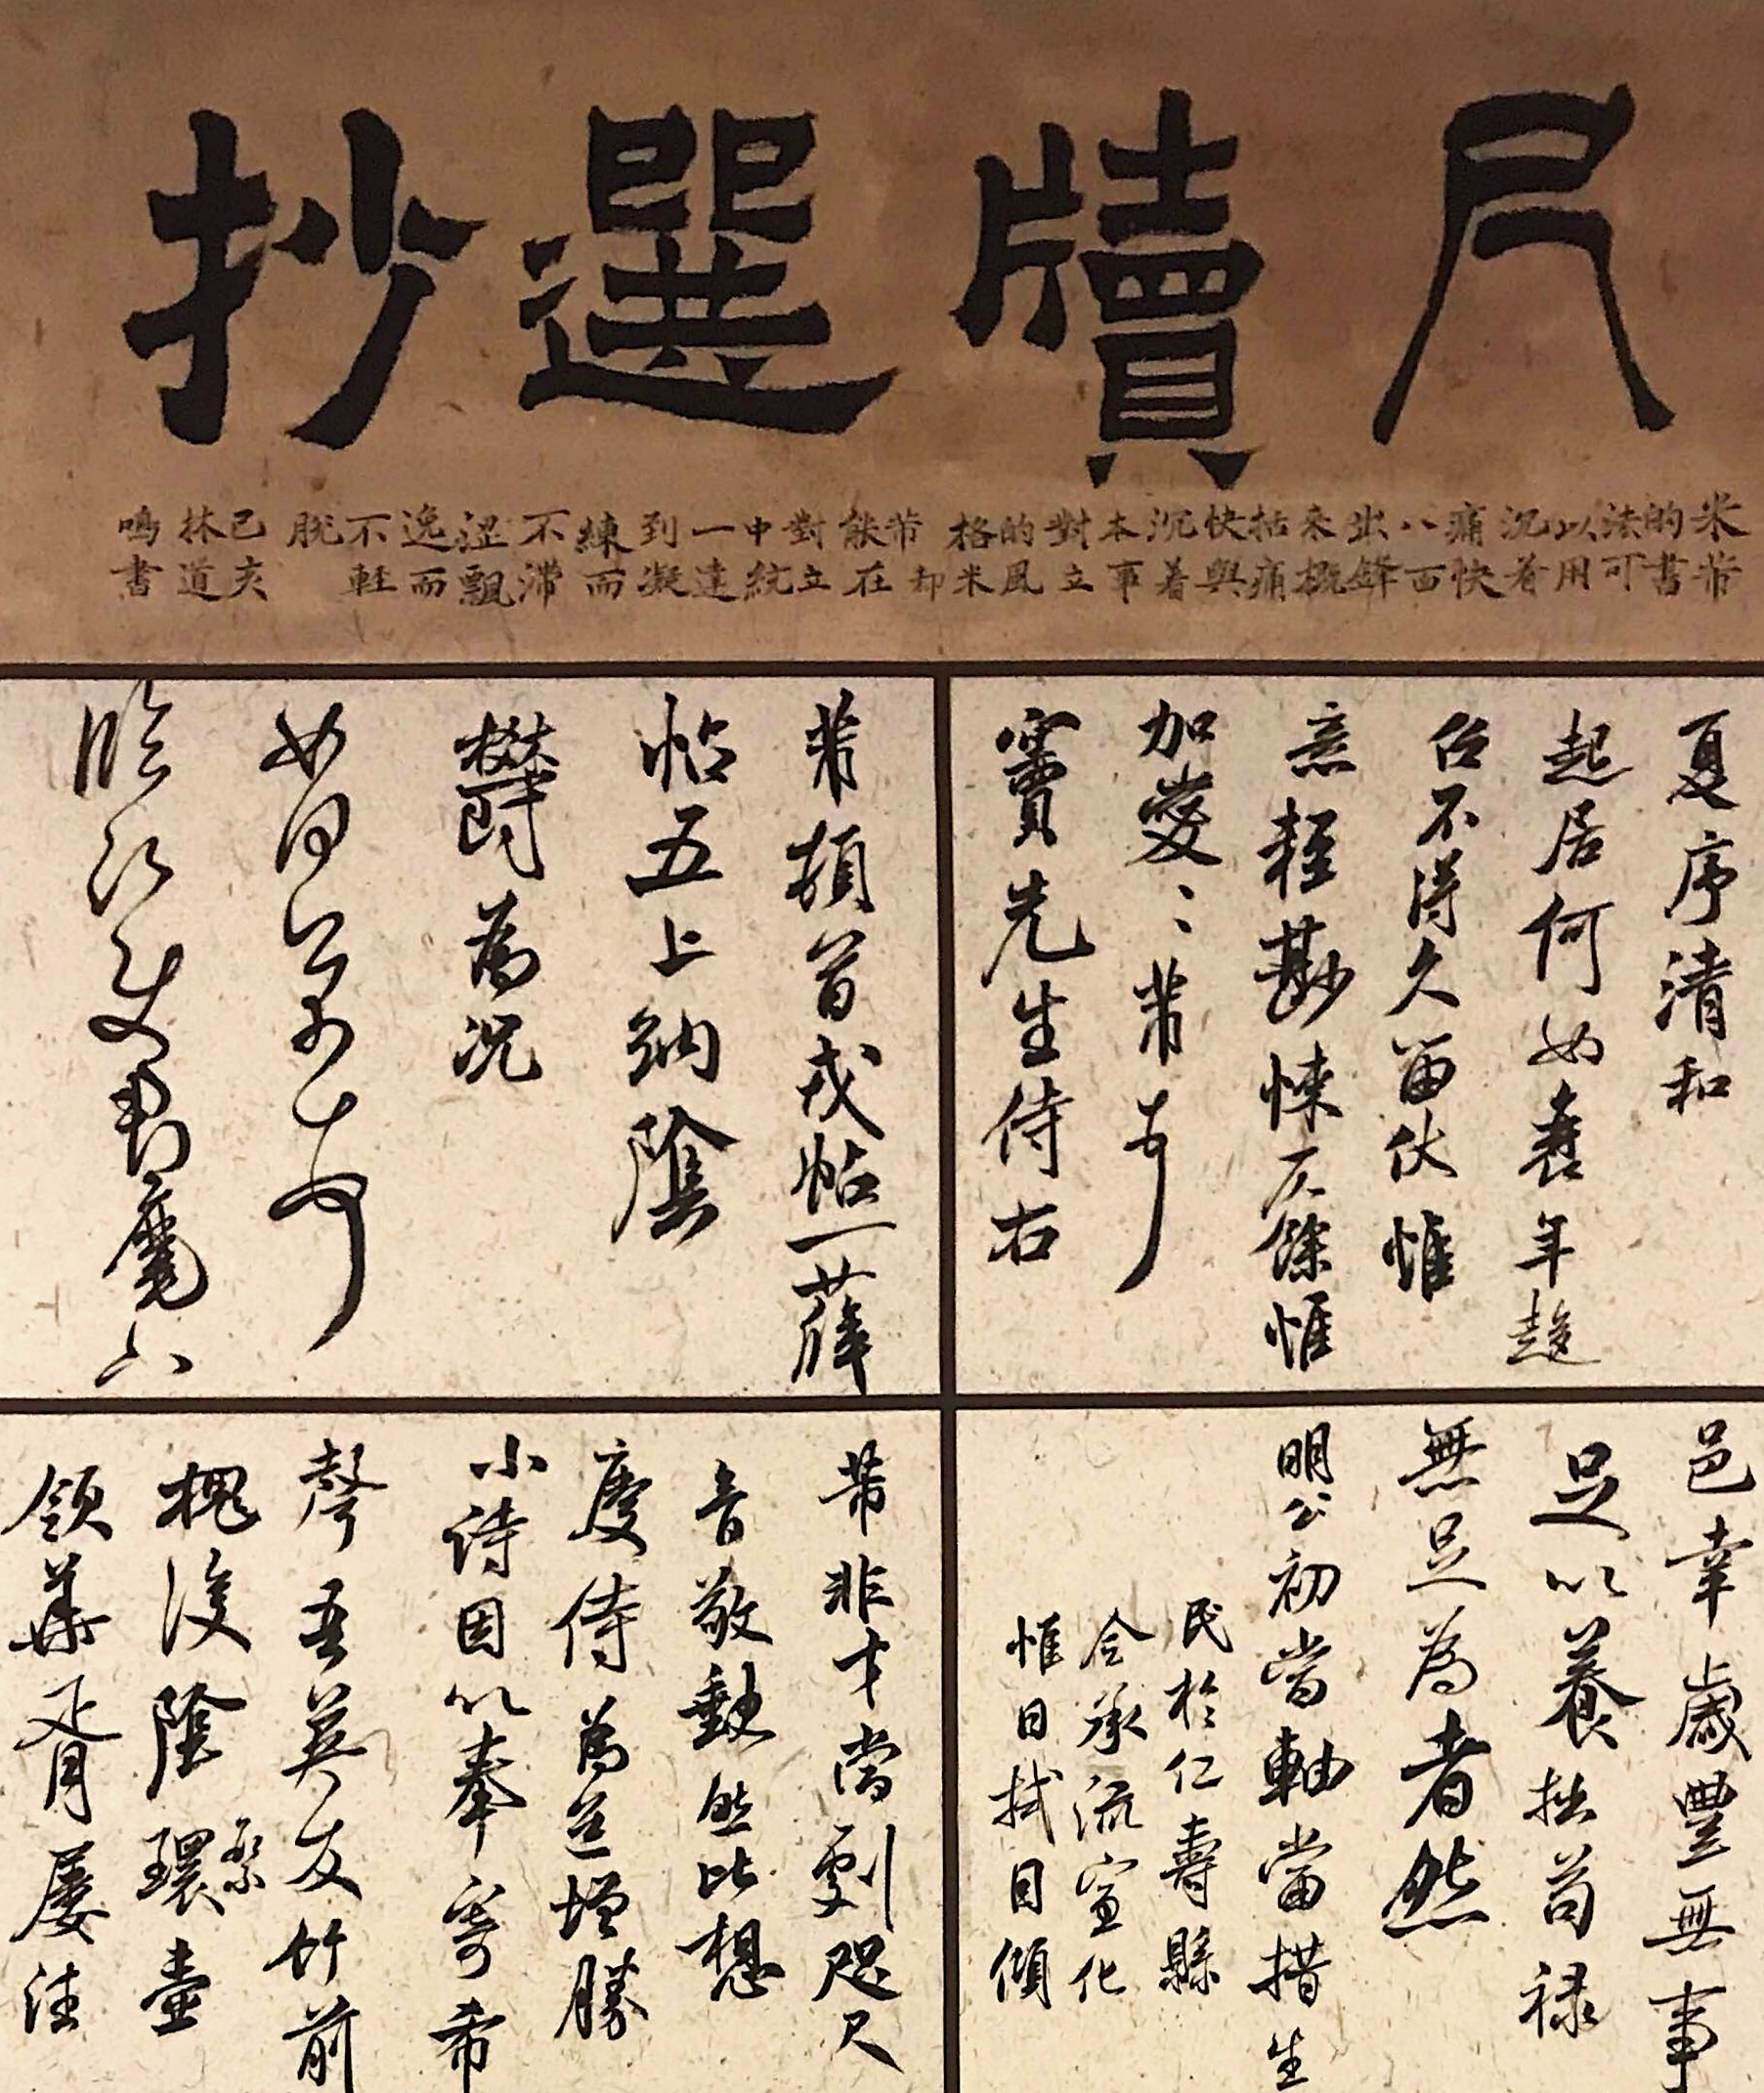 尺牘選抄
米芾的書法可以用沉着痛快八面出鋒来概括痛快與沉着本事對立的風格米芾却能在對立中統一達到凝練而不滯涩飄逸而不輕脱
已亥林道鳴書
夏序清和
起居何如衰年趨
召不得久留伏惟
意輕尠悚仄餘惟
加愛、、芾
竇先生侍右
芾頓首戎帖一薛
帖五上納陰
鬱為況
如何芾頓首
臨沂使君麾下
邑幸歲豐無事
足以養拙苟禄
無足為者然
明公初當軸當措生
民於仁壽縣
令承流宣化
惟日拭目傾
芾非才當劇咫尺
音敬勤然比想
慶侍為道增勝
小詩因以奉寄希
聲吾英友竹前
槐後陰環繁壺
領華胥屢往